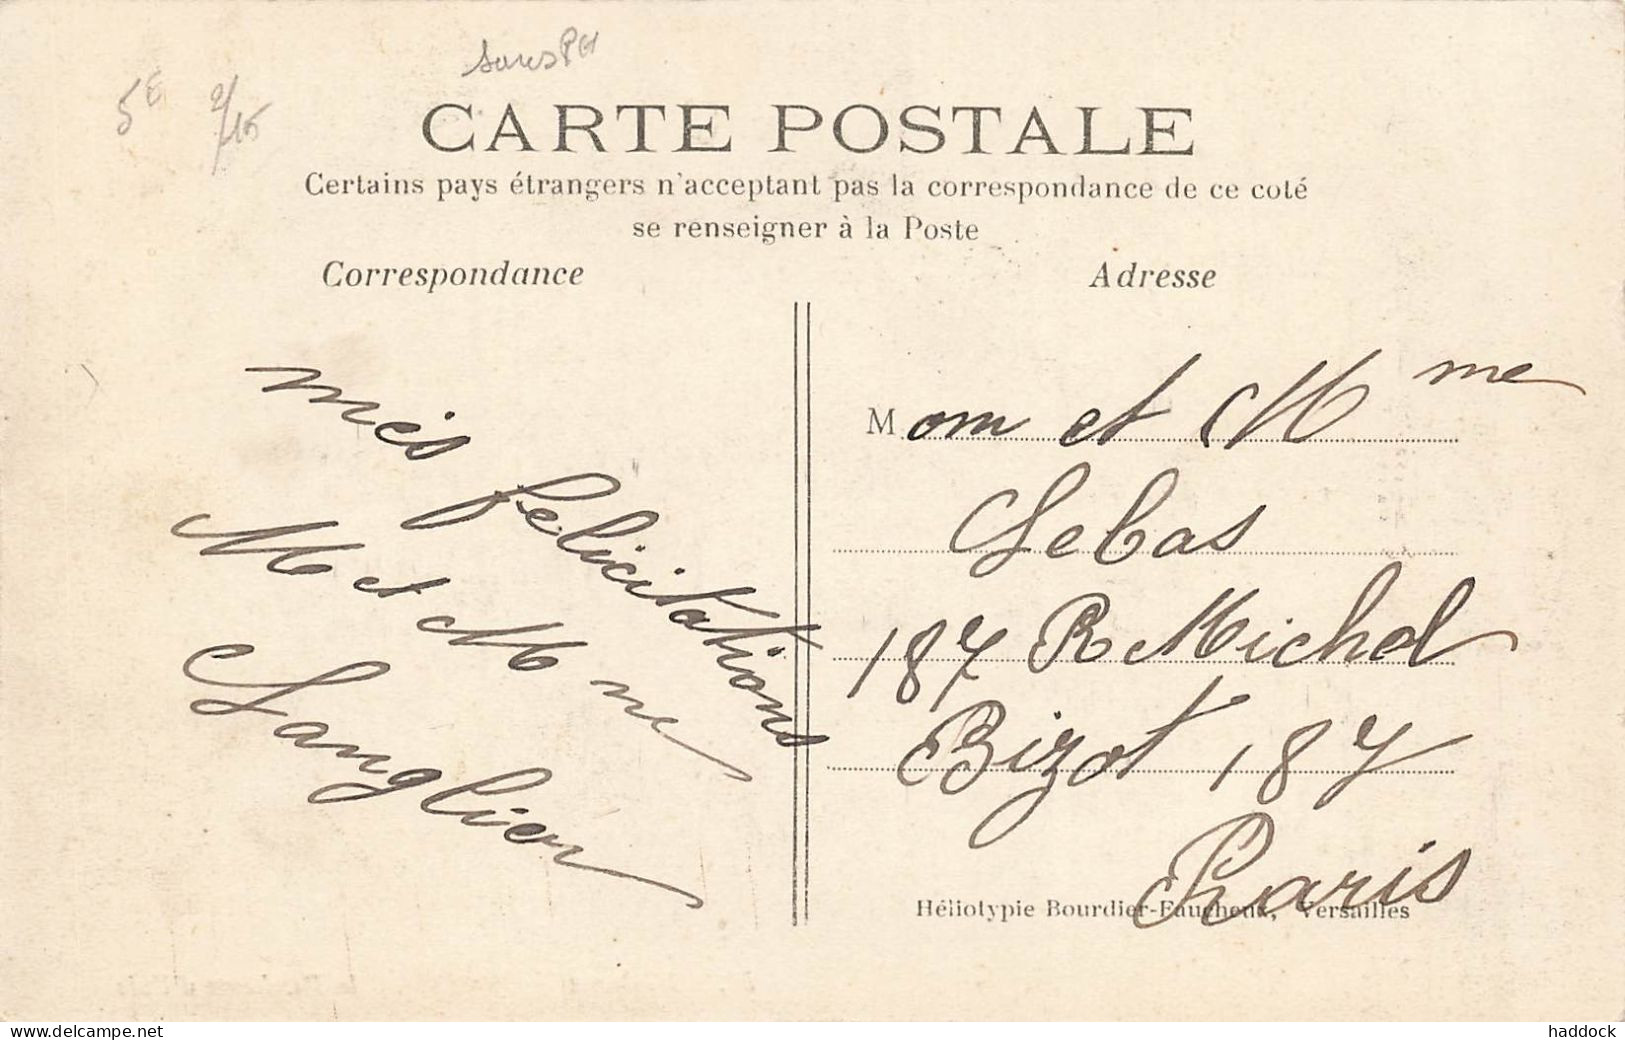 5E 2/15
CARTE POSTALE
Certains pays étrangers n'acceptant pas la correspondance de ce coté
se renseigner à la Poste
Correspondance
mes felicitations
M et M me
Sanglier
Adresse
Mom et Mme
Lebas
187 R Michel
Bizot 187
Paris
Héliotypie Bourdier-Faucheux, Versailles
www.delcampe.net
haddock